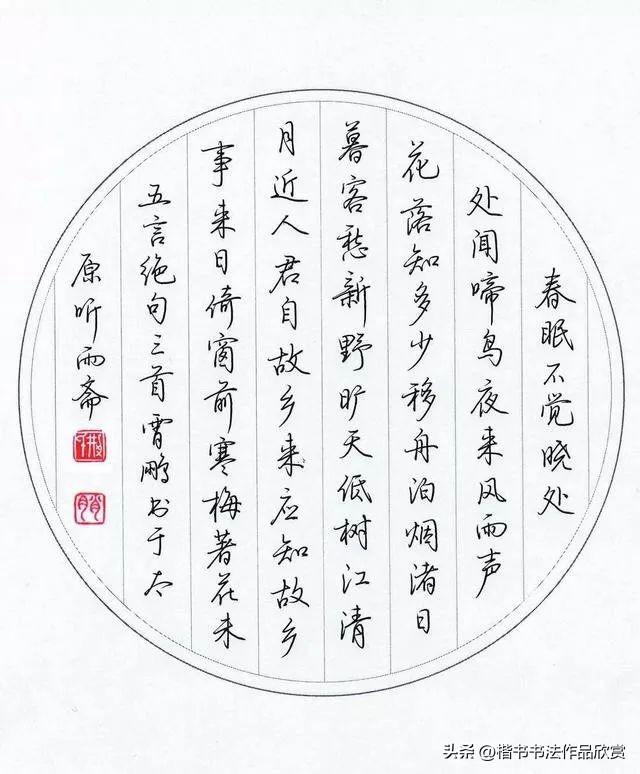 春眠不觉晓处
处闻啼鸟夜来风雨声
花落知多少移舟泊烟渚日
暮客愁新野旷天低树江清
月近人君自故乡来应知故乡
事来日倚窗前寒梅著花未
五言绝句三首霄鹏书于太
原听雨斋
头条@楷书书法作品欣赏